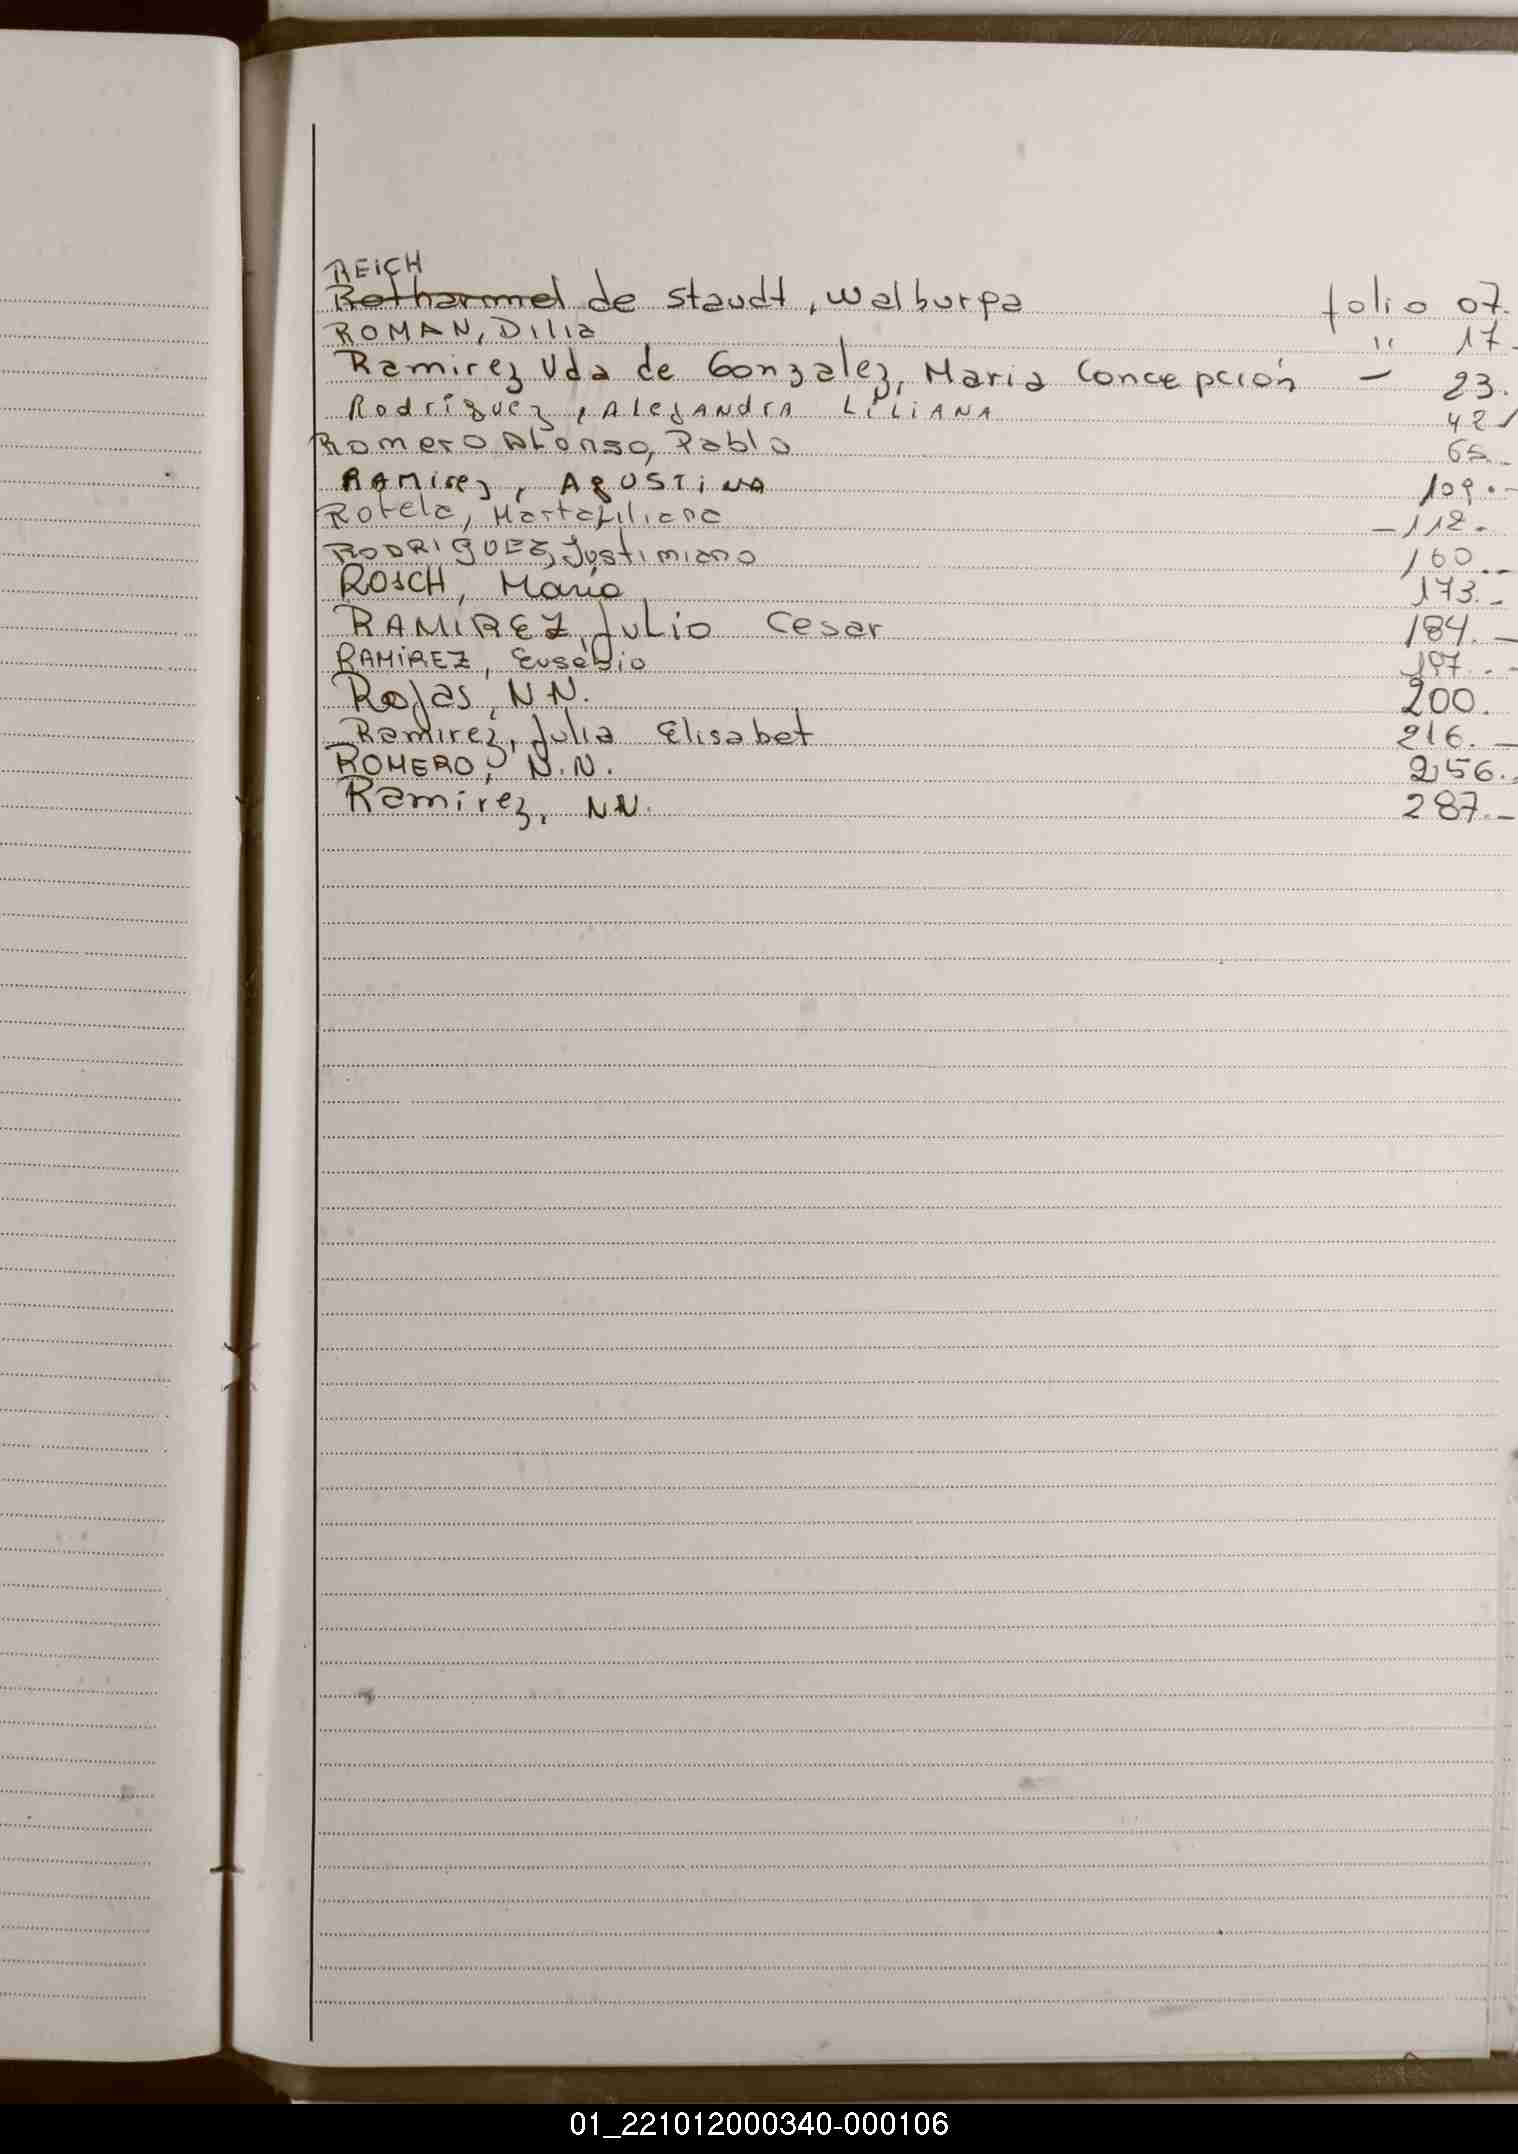 REICH
Rotharmel de Staudt, Walburga folio 07.
ROMAN, Dilia " 17.
Ramirez Vda de Gonzalez, Maria Concepción — 23.
Rodríguez, Alejandra Liliana 42
Romero Alonso, Pablo 65
Ramirez, Agustina 109.-
Rotela, Marta Liliana - 112.
RODRIGUEZ, Justimiano 160.-
ROSCH, Mario 173.-
RAMIREZ, Julio Cesar 184.-
RAMÍREZ, Eusebio 197.-
Rojas, N.N. 200.
Ramirez, Julia Elisabet 216.-
ROMERO, N.N. 256.-
Ramirez, NN. 287.-
01_221012000340-000106